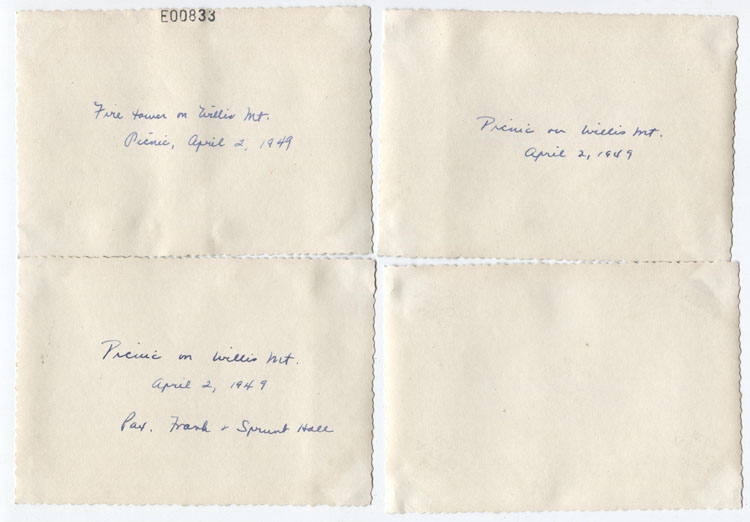 E00833
Fire tower on Willis Mt.
Picnic, April 2, 1949
Picnic on Willis Mt.
April 2, 1949
Picnic on Willis Mt.
April 2, 1949
Pax, Frank + Sprunt Hall